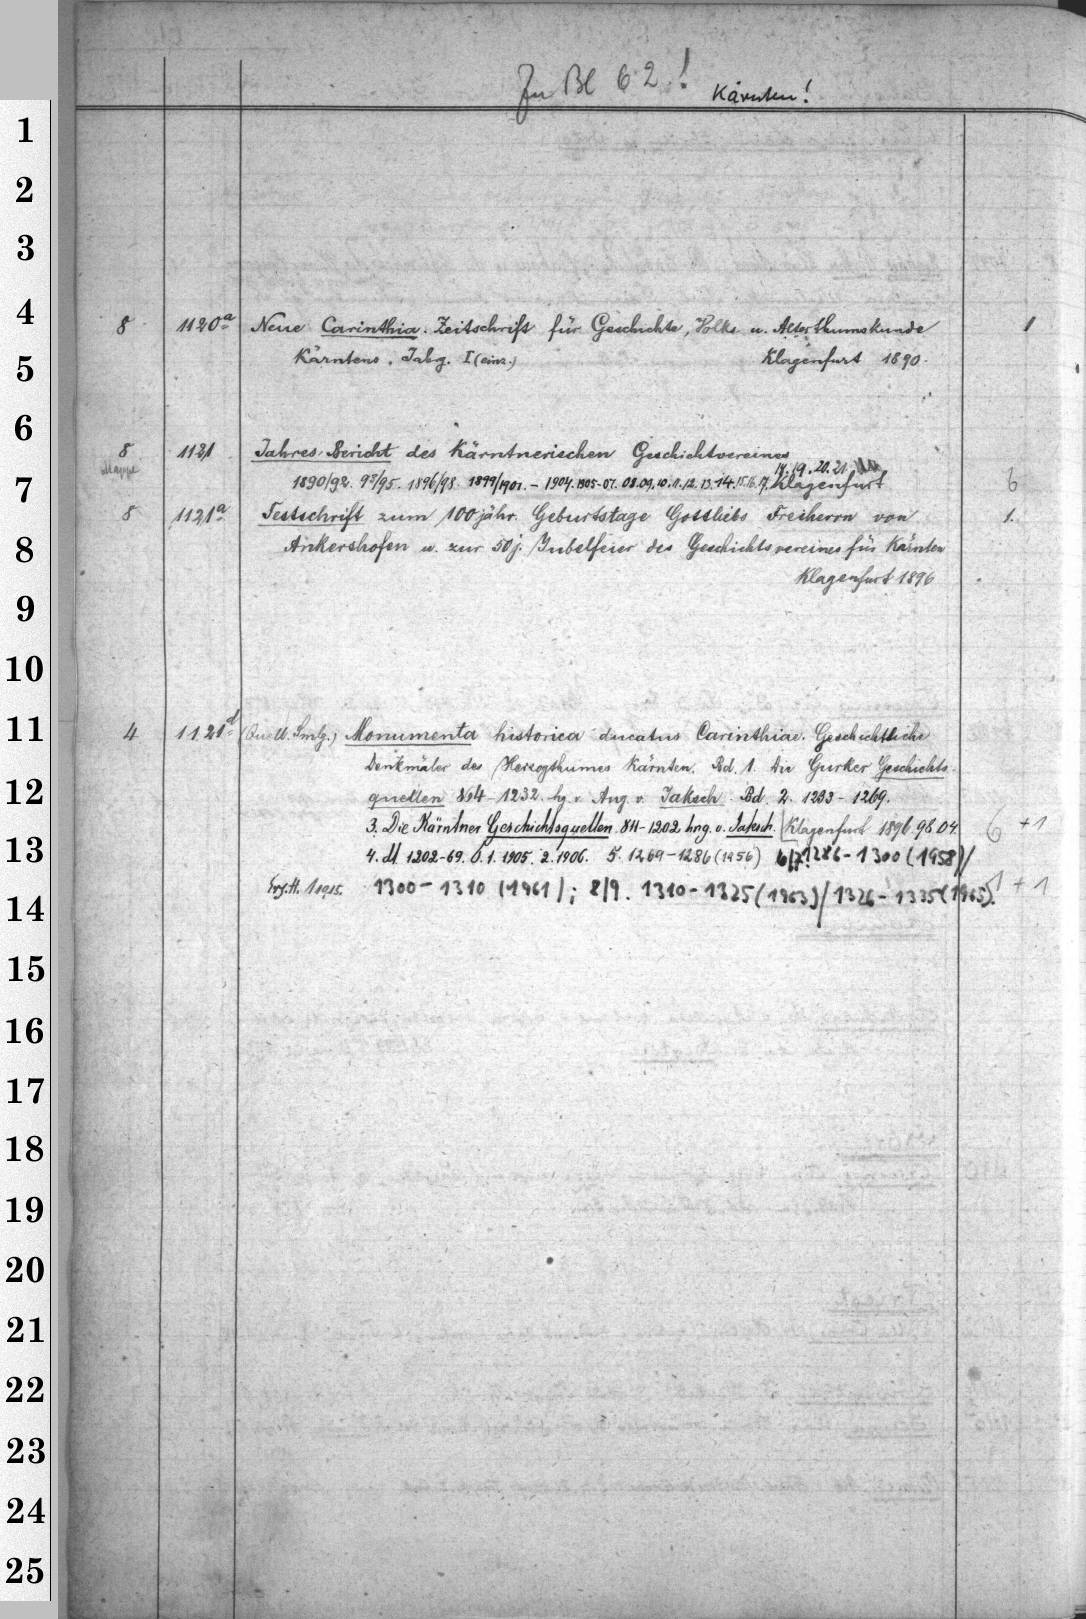 Zu Bl 62! Kärnten!
1
2
3
4 8 1120a Neue Carinthia. Zeitschrift für Geschichte, Volks u. Alterthumskunde 1
Kärntens. Jahrg. I (einz.) Klagenfurt 1890.
5
6
8 1121 Jahres-Bericht des Kärntnerischen Geschichtvereines
Mappe 18.19.20.21.
7 1890/92. 93/95. 1896/98 1899/1901. - 1904. 1905-07. 08.09.10.11.12.13.14.15.16.17. Klagenfurt 6
8 1121a Festschrift zum 100jähr. Geburtstage Gottliebs Freiherrn von 1.
8 Ankershofen u. zur 50j. Jubelfeier des Geschichtsvereines für Kärnten
Klagenfurt 1896
9
10
11 4 1121d (Quell. Smlg.) Monumenta historica ducatus Carinthiae. Geschichtliche
Denkmäler des Herzogthumes Kärnten. Bd. 1. Die Gurker Geschichts-
12 quellen 864-1232. hg. v. Aug. v. Jaksch. Bd. 2. 1233-1269.
3. Die Kärntner Geschichtsquellen 811-1202 hrg. v. Jaksch. Klagenfurt 1896.98.04. 6 +1
13 4. dt 1202-69. 1. 1905. 2. 1906. 5. 1269-1286 (1956) 6/7. 1286-1300 (1958)/
Erg.H. 1 1915. 1300-1310 (1961); 8/9. 1310-1325 (1963)/1326-1335 (1965). 1 + 1
14
15
16
17
18
19
20
21
22
23
24
25